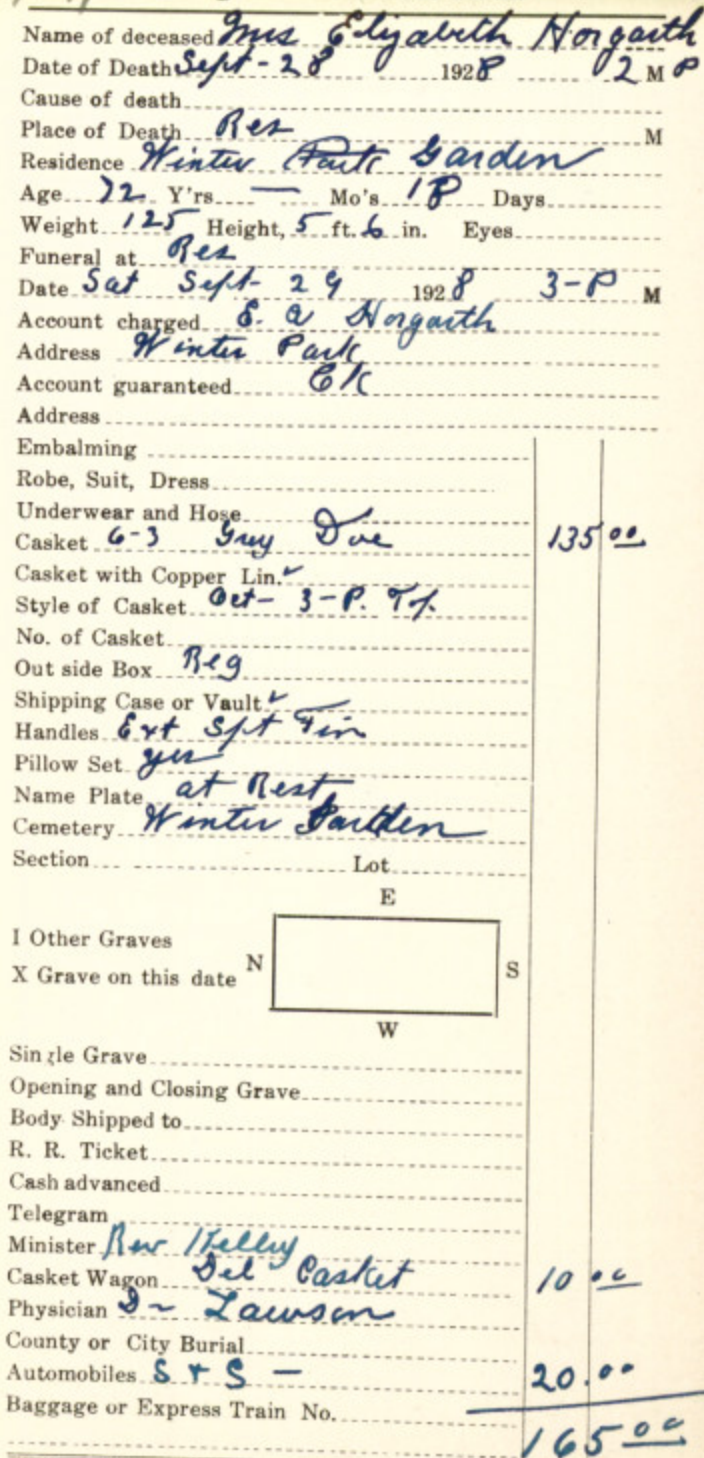 Name of deceased Mrs Elizabeth Horgarth
Date of Death Sept - 28 1928 2 M P
Cause of death
Place of Death Res M
Residence Winter Park Garden
Age 72 Y'rs — Mo's 18 Days
Weight 125 Height, 5 ft. 6 in. Eyes
Funeral at Res
Date Sat Sept - 29 1928 3-P M
Account charged E. A Horgarth
Address Winter Park
Account guaranteed
Address
Embalming
Robe, Suit, Dress
Underwear and Hose
Casket 6-3 Grey Doe 135 00
Casket with Copper Lin. ✓
Style of Casket Oct - 3-P. Tp.
No. of Casket
Out side Box Reg
Shipping Case or Vault ✓
Handles Ext Spt Fin
Pillow Set yes
Name Plate at Rest
Cemetery Winter Garden
Section Lot
E
I Other Graves
N S
X Grave on this date
W
Single Grave
Opening and Closing Grave
Body Shipped to
R. R. Ticket
Cash advanced
Telegram
Minister Rev Kelley
Casket Wagon Del Casket 10 00
Physician Dr Lawson
County or City Burial
Automobiles S + S — 20.00
Baggage or Express Train No.
165 00